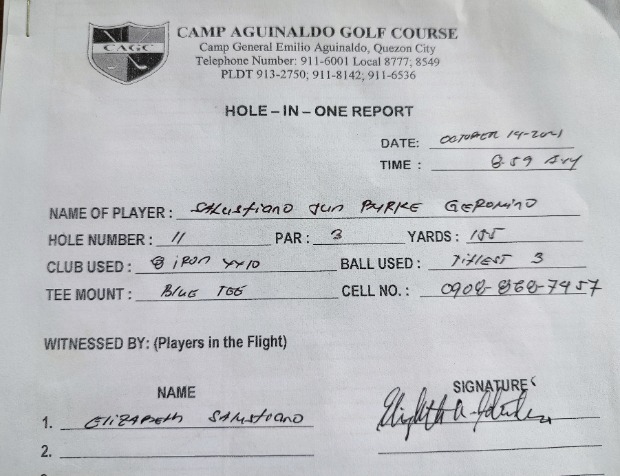 CAGC
CAMP AGUINALDO GOLF COURSE
Camp General Emilio Aguinaldo, Quezon City
Telephone Number: 911-6001 Local 8777; 8549
PLDT 913-2750; 911-8142; 911-6536
HOLE – IN – ONE REPORT
DATE: OCTOBER 14-2021
TIME : 8:59
NAME OF PLAYER : SALUSTIANO JUN GERONIMO
HOLE NUMBER : 11 PAR : 3 YARDS : 155
CLUB USED : 8 IRON XX10 BALL USED : TITLEST 3
TEE MOUNT : BLUE TEE CELL NO. : 0908-868-7457
WITNESSED BY: (Players in the Flight)
NAME SIGNATURE
1. ELIZABETH SALUSTIANO
2.